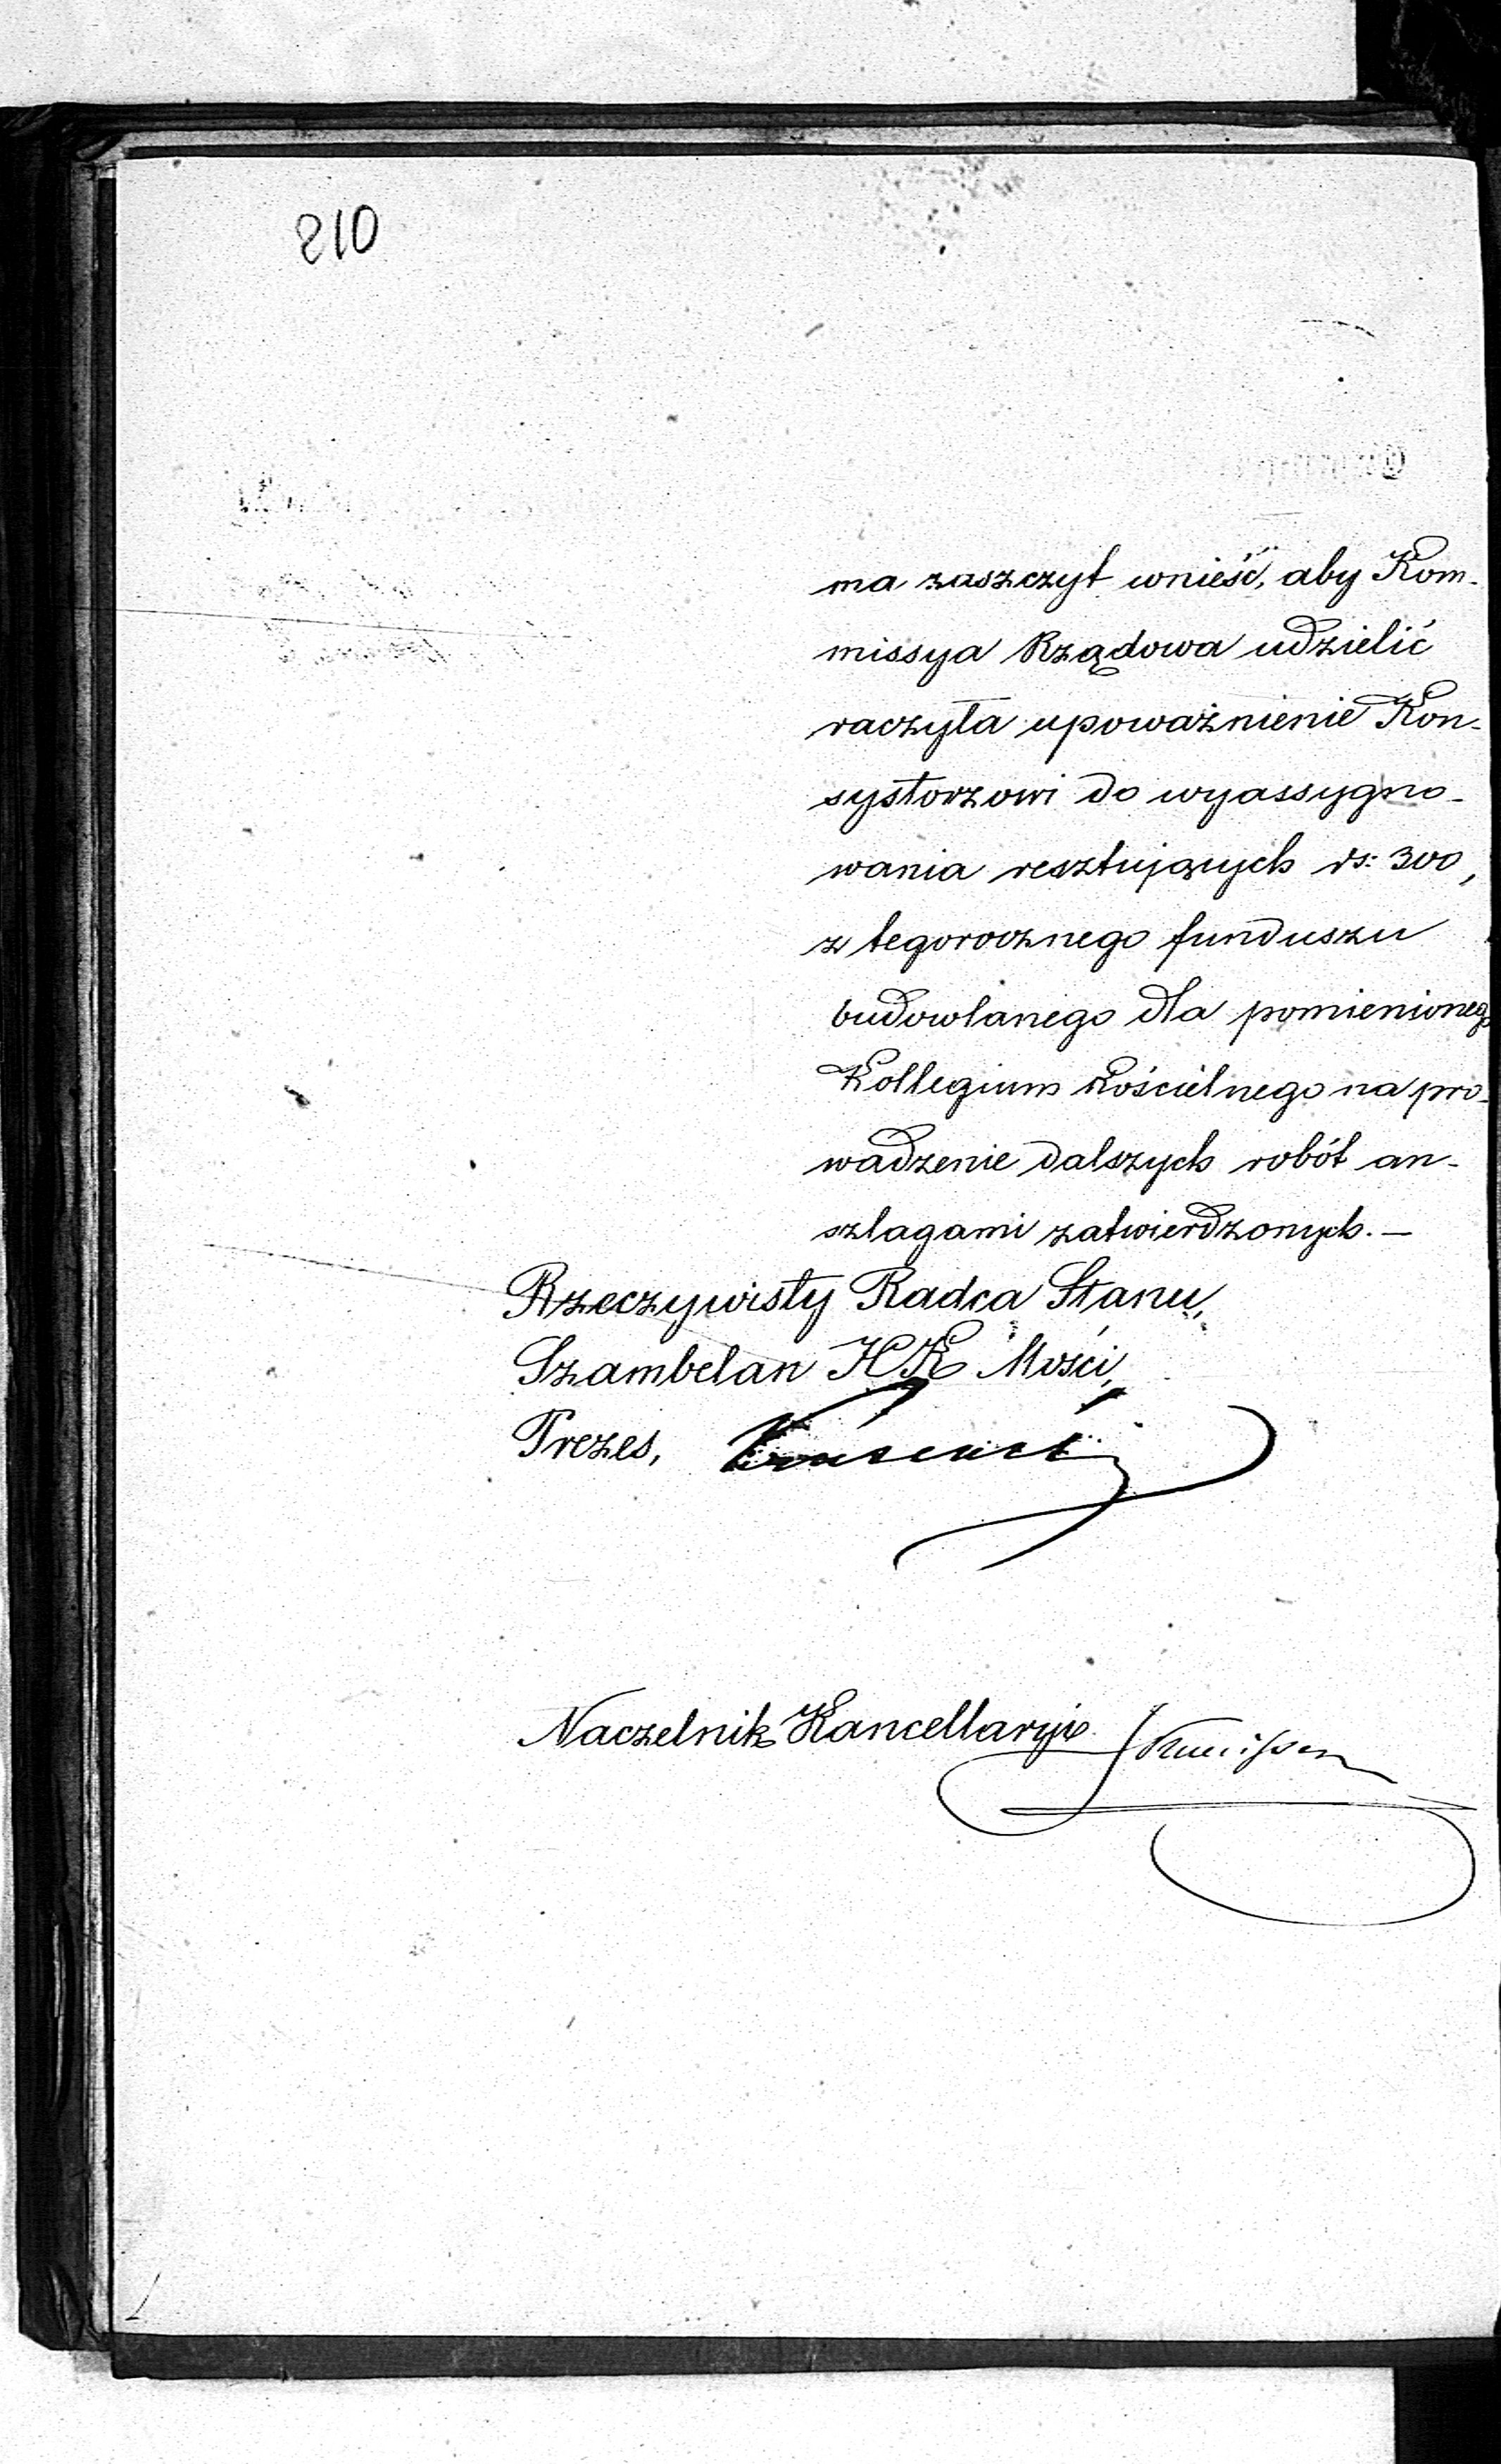 210
ma zaszczyt wnieść, aby Kom-
missya Rządowa udzielić
raczyła upoważnienie Kon-
systorzowi do wyassygno-
wania resztujących rs: 300,
z tegorocznego funduszu
budowlanego dla pomienionego
Kollegium Kościelnego na pro-
wadzenie dalszych robót an-
szlagami zatwierdzonych. —
Rzeczywisty Radca Stanu,
Szambelan JKK Mości,
Prezes,
Naczelnik Kancellaryi